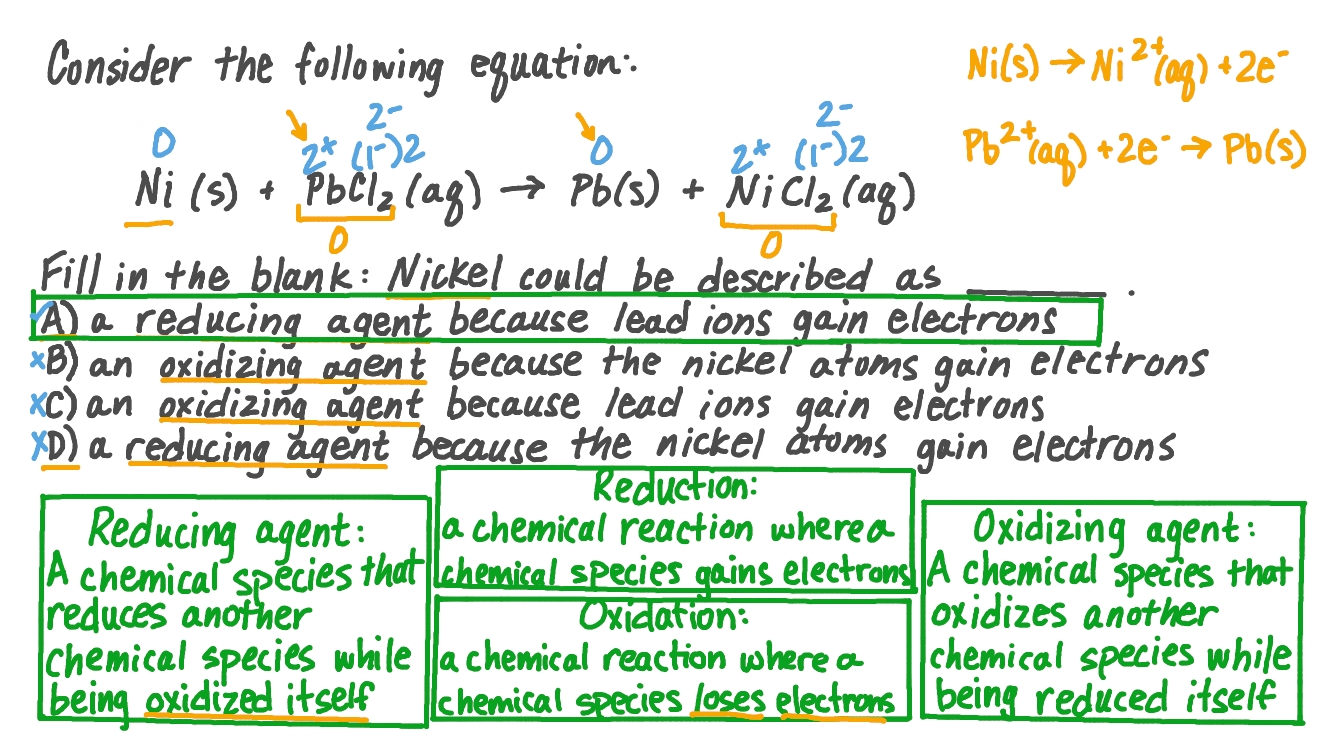 Consider the following equation:
Ni(s) → Ni²⁺(aq) + 2e⁻
Pb²⁺(aq) + 2e⁻ → Pb(s)
2⁻ 2⁻
0 2⁺ (1⁻)2 0 2⁺ (1⁻)2
Ni (s) + PbCl₂ (aq) → Pb(s) + NiCl₂ (aq)
0 0
Fill in the blank: Nickel could be described as ________ .
A) a reducing agent because lead ions gain electrons
B) an oxidizing agent because the nickel atoms gain electrons
C) an oxidizing agent because lead ions gain electrons
D) a reducing agent because the nickel atoms gain electrons
Reducing agent:
A chemical species that
reduces another
chemical species while
being oxidized itself
Reduction:
a chemical reaction where a
chemical species gains electrons
Oxidation:
a chemical reaction where a
chemical species loses electrons
Oxidizing agent:
A chemical species that
oxidizes another
chemical species while
being reduced itself